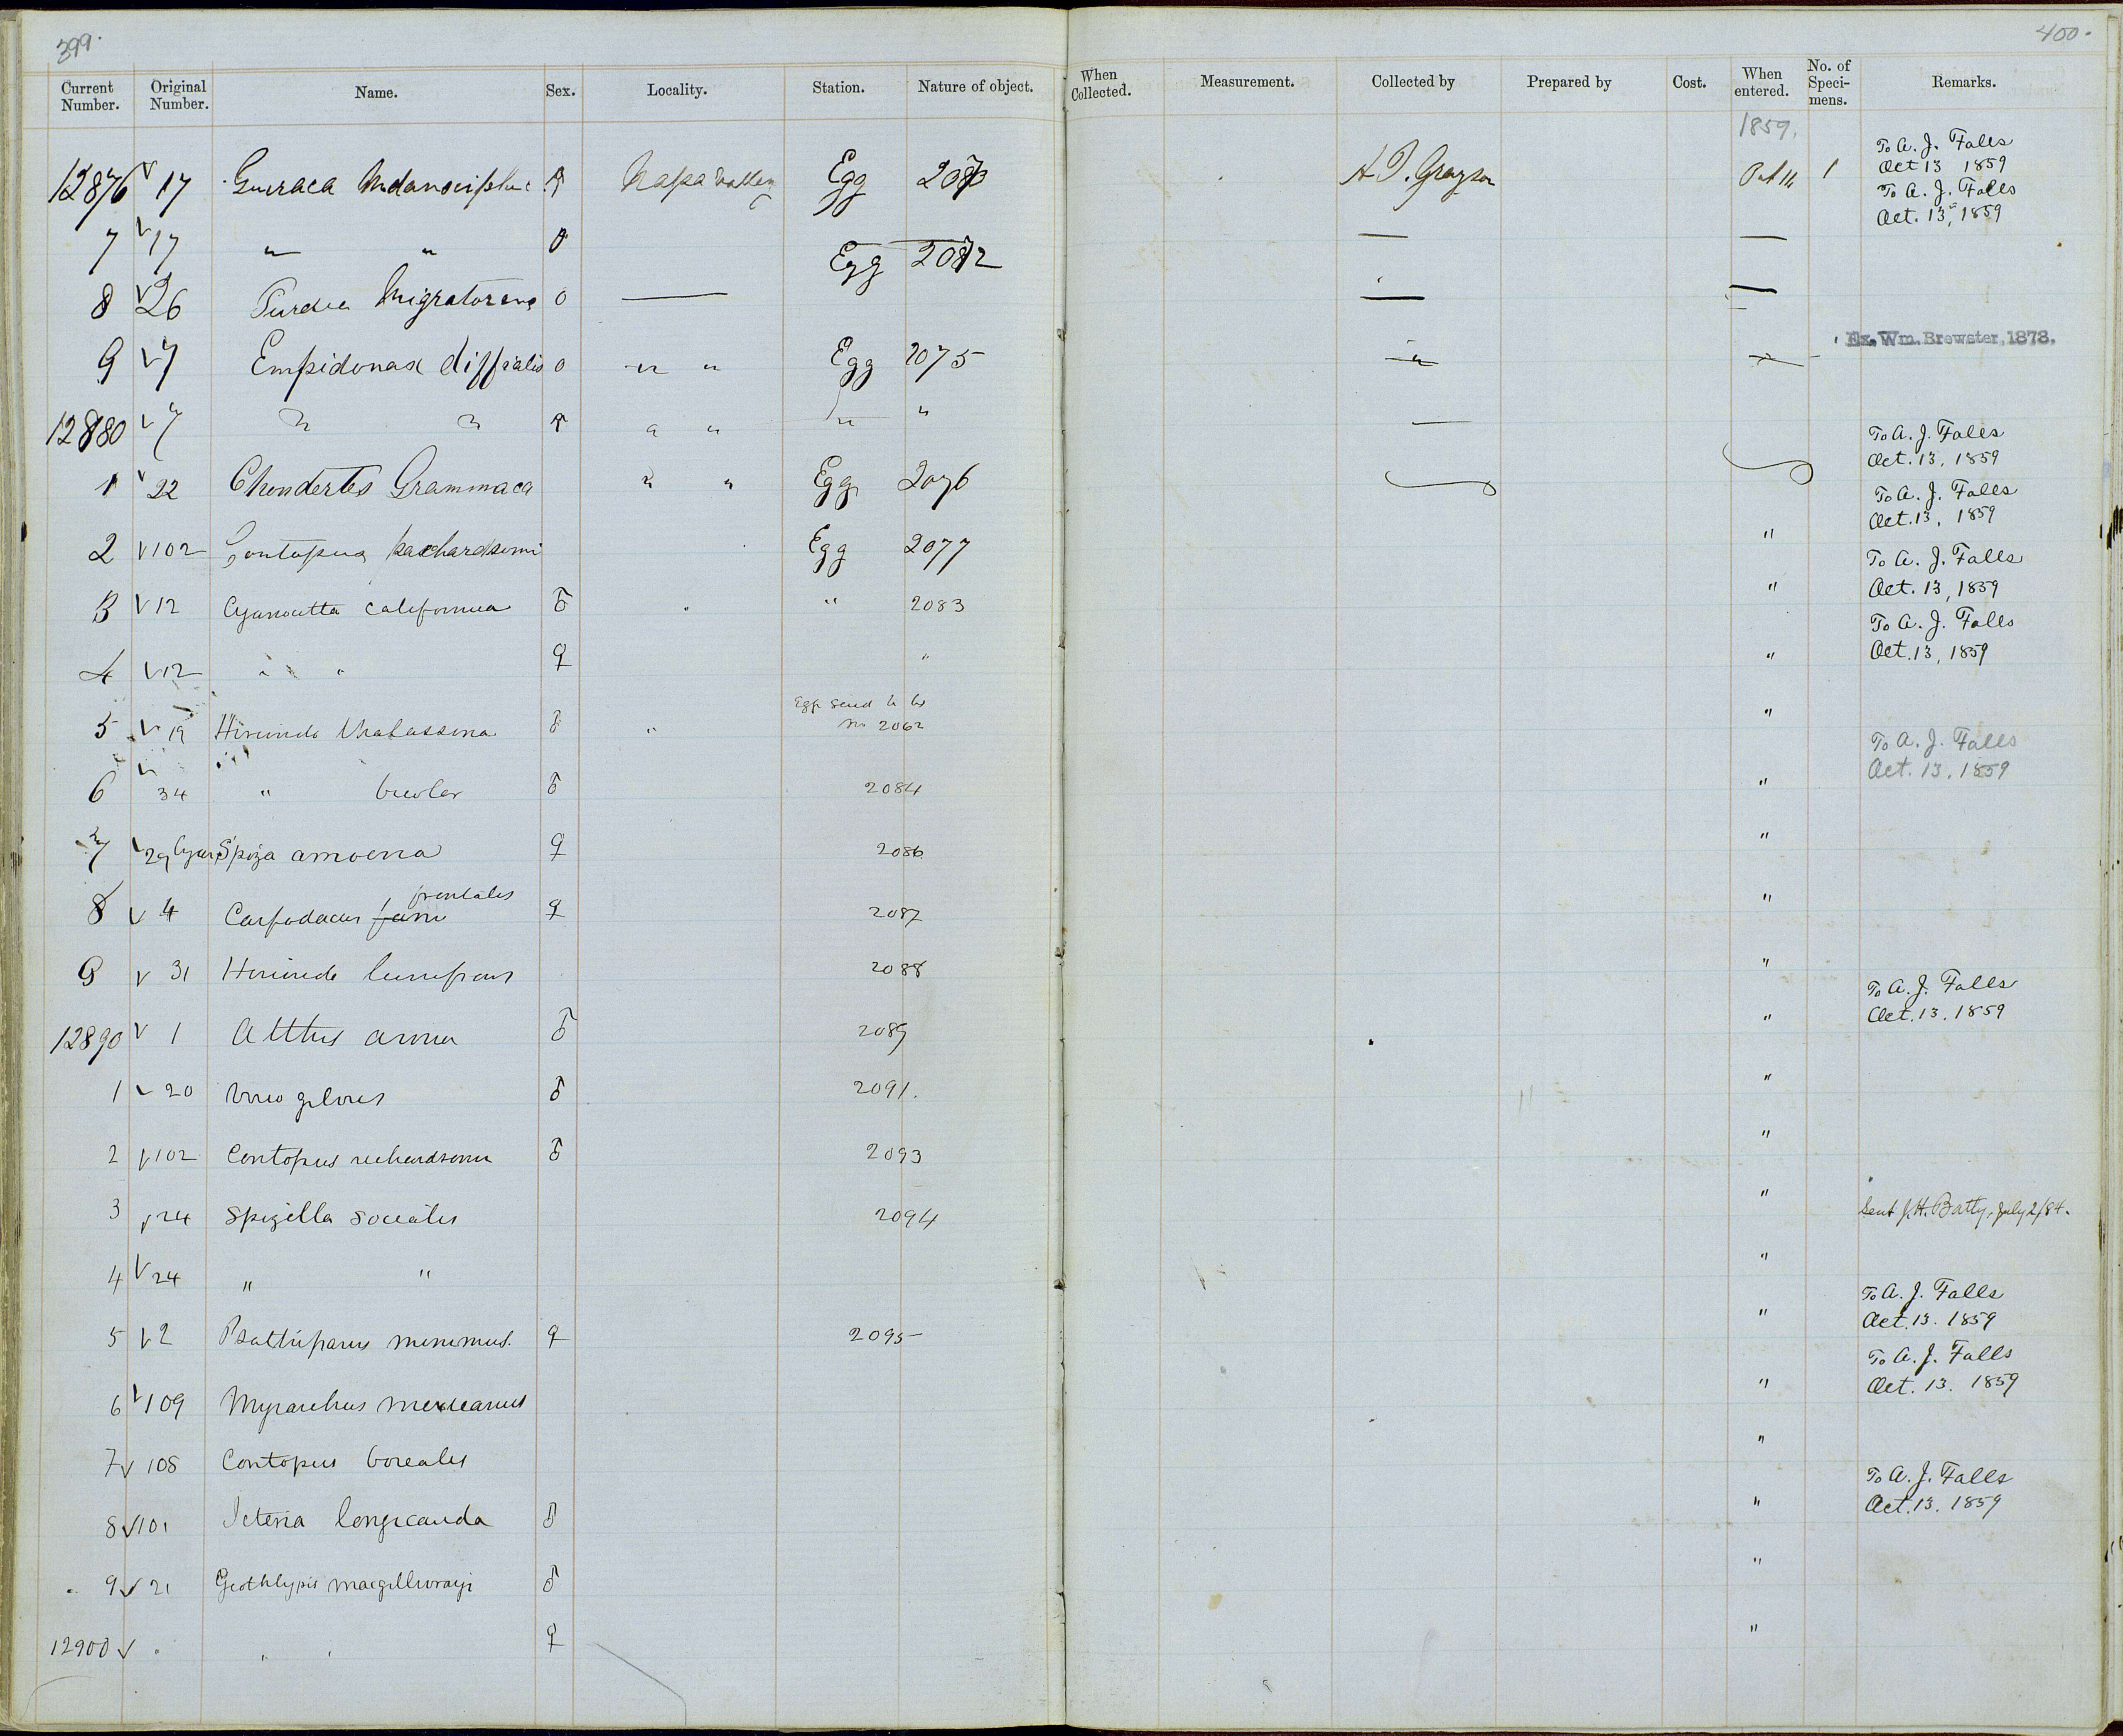 399.
400.
Current Number. Original Number. Name. Sex. Locality. Station. Nature of object. When Collected. Measurement. Collected by Prepared by Cost. When entered. No. of Speci-mens. Remarks.
1859.
To A. J. Falls
Oct 13 1859
12876 17 Guiraca ♀ Napa Valley Egg A. J. Grayson Oct 1
To A. J. Falls
Oct. 13, 1859
7 17 " " Egg
8 26 Migratorius
Ex. Wm. Brewster, 1878.
9 7 Empidonax difficilis Egg 2075
12880 7 " " " " " "
To A. J. Falls
Oct. 13, 1859
1 22 Chondertes Grammaca " " Egg 2076
To A. J. Falls
Oct. 13, 1859
2 102 Contopus Egg 2077 "
To A. J. Falls
Oct. 13, 1859
3 12 Cyanocitta californica ♂ " 2083 "
To A. J. Falls
Oct. 13, 1859
4 12 " " ♀ " "
Egg
5 19 Hirundo thalassina ♂ " No 2062 "
To A. J. Falls
Oct. 13, 1859
6 34 " bicolor ♂ 2084 "
7 29 Cyanospiza amoena ♀ 2086 "
frontalis
8 4 Carpodacus ♀ 2087 "
9 31 Hirundo lunifrons 2088 "
To A. J. Falls
Oct. 13, 1859
12890 1 Atthis anna ♂ 2089 "
1 20 Vireo gilvus ♂ 2091. "
2 102 Contopus richardsonii ♂ 2093 "
3 24 Spizella socialis 2094 " Sent J. H. Batty, July 2/84.
4 24 " " "
To A. J. Falls
Oct. 13. 1859
5 2 Psaltriparus minimus. ♀ 2095 "
To A. J. Falls
Oct. 13. 1859
6 109 Myiarchus mexicanus "
7 108 Contopus borealis "
To A. J. Falls
Oct. 13. 1859
8 101 Icteria longicauda ♂ "
9 21 Geothlypis macgillivrayi ♂ "
12900 " " " ♀ "